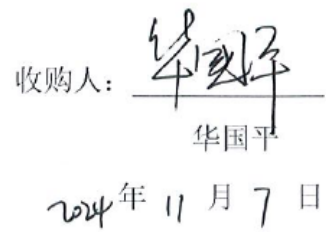 收购人：华国平
华国平
2024年11月7日